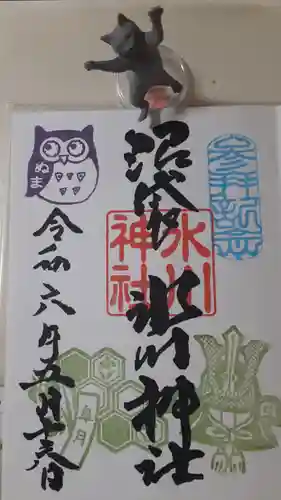 参拝記念
沼袋 氷川神社
氷川神社
ぬま
令和六年五月十六日
皐月